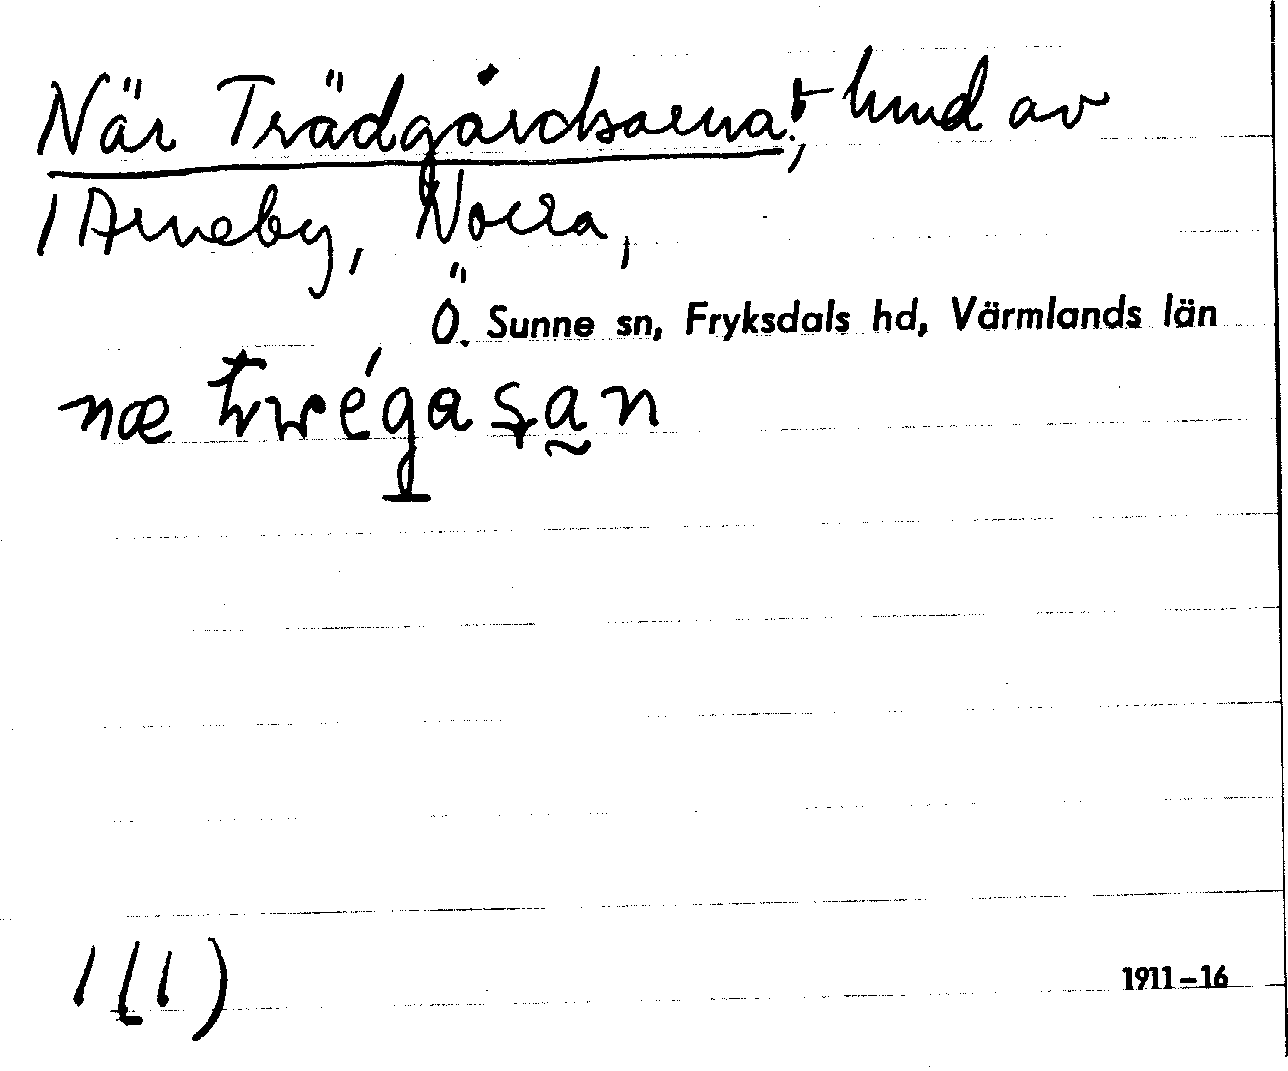 När Trädgårdsarna, t hmd av
1 Arneby, Norra,
Ö. Sunne sn, Fryksdals hd, Värmlands län
næ trégasan
1 (1)
1911–16